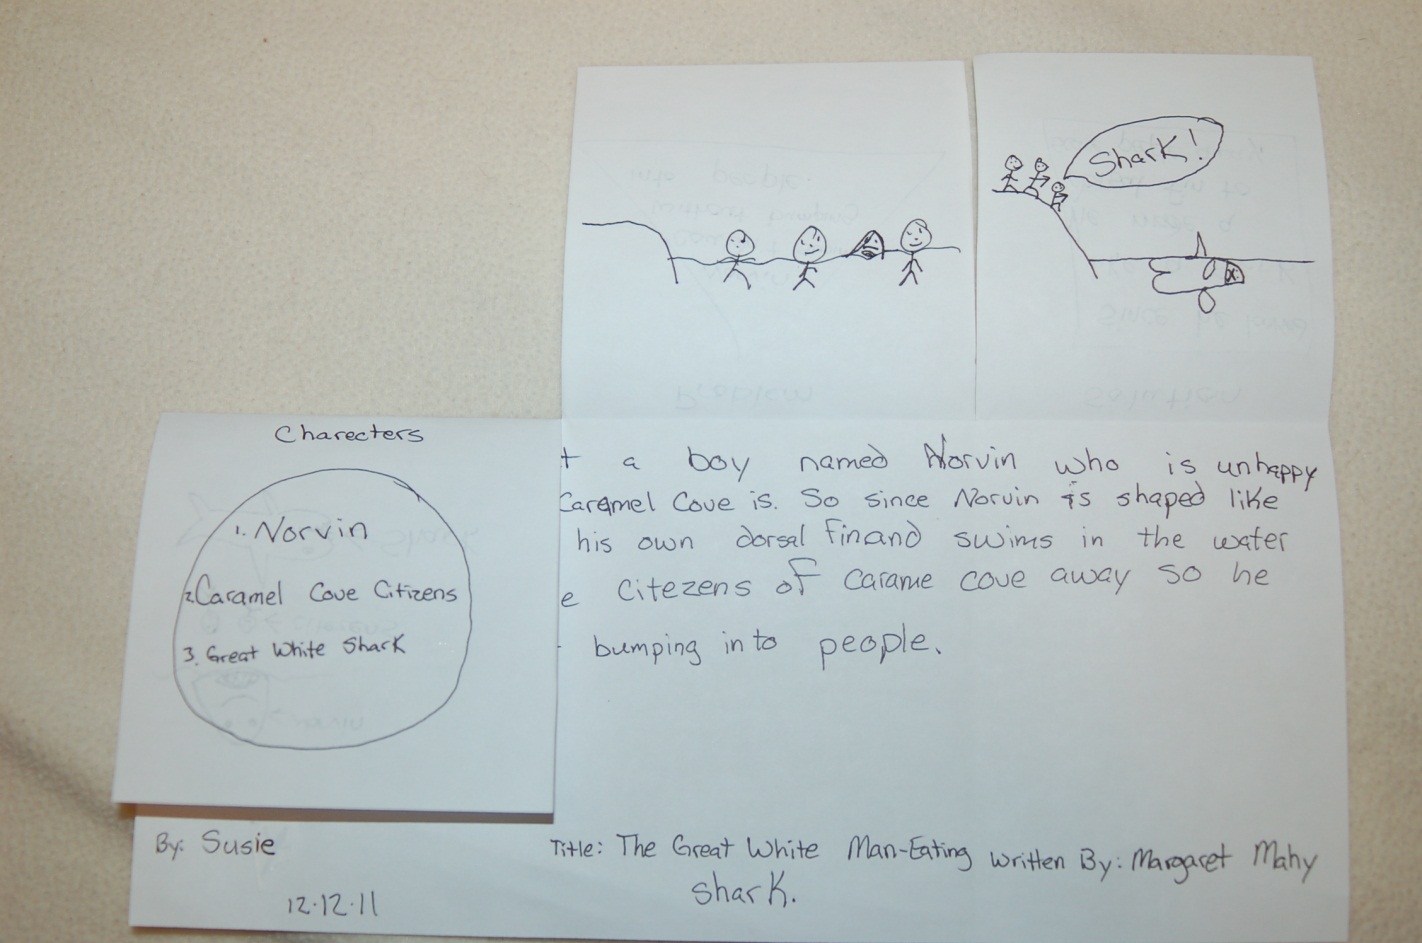 Shark!
Charecters
1. Norvin
2. Caramel Cove Citizens
3. Great White Shark
t a boy named Norvin who is unhappy
Caramel Cove is. So since Norvin is shaped like
his own dorsal fin and swims in the water
e Citezens of Carame cove away so he
bumping into people.
By: Susie
12.12.11
Title: The Great White Man-Eating
Shark.
Written By: Margaret Mahy
Problem
Solution